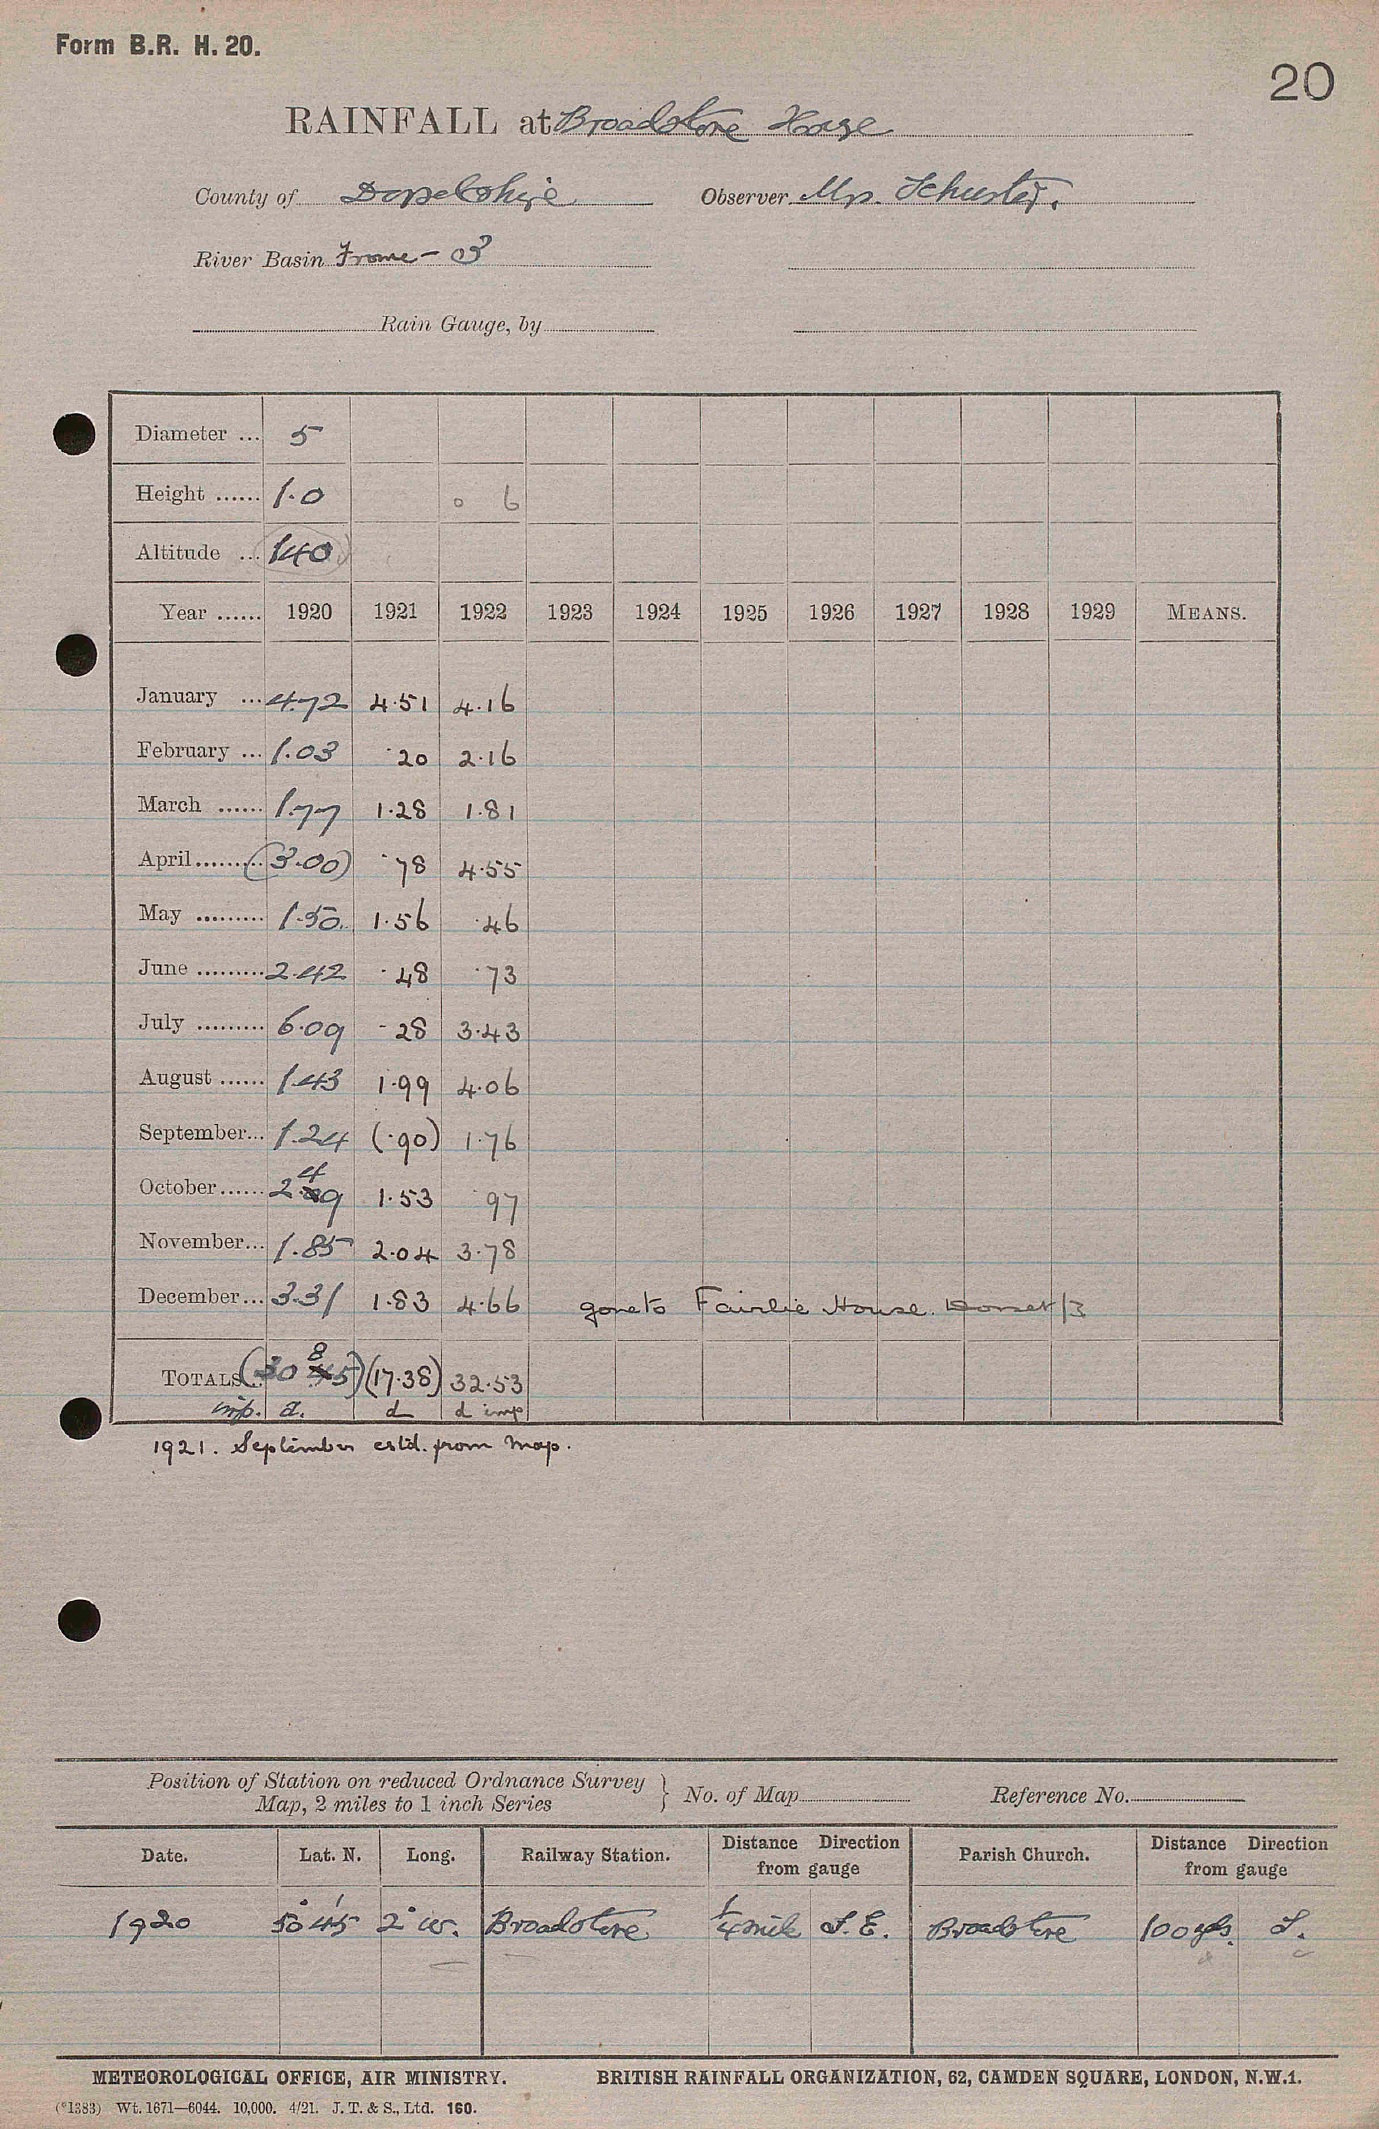 Form B.R. H. 20.
20
RAINFALL at Broadstone House
County of Dorsetshire Observer Mrs. Schuster.
River Basin Frome - 3
Rain Gauge, by
Diameter ... 5
Height ...... 1.0 0 6
Altitude ... 140
Year ...... 1920 1921 1922 1923 1924 1925 1926 1927 1928 1929 MEANS.
January ... 4.72 4.51 4.16
February ... 1.03 .20 2.16
March ...... 1.77 1.28 1.81
April ......... (3.00) .78 4.55
May ......... 1.50 1.56 .46
June ......... 2.42 .48 .73
July ......... 6.09 .28 3.43
August ...... 1.43 1.99 4.06
September... 1.24 (.90) 1.76
October...... 2.49 1.53 .97
November... 1.85 2.04 3.78
December... 3.31 1.83 4.66 gone to Fairlie House. Dorset/3
TOTALS... (30 85) (17.38) 32.53
imp. d. d d imp
1921. September estd. from map.
Position of Station on reduced Ordnance Survey Map, 2 miles to 1 inch Series } No. of Map Reference No.
Date. Lat. N. Long. Railway Station. Distance Direction from gauge Parish Church. Distance Direction from gauge
1920 50° 45' 2° W. Broadstone 1/4 mile S.E. Broadstone 100 yds. S.
METEOROLOGICAL OFFICE, AIR MINISTRY. BRITISH RAINFALL ORGANIZATION, 62, CAMDEN SQUARE, LONDON, N.W.1.
(*1383) Wt. 1671—6044. 10,000. 4/21. J. T. & S., Ltd. 160.